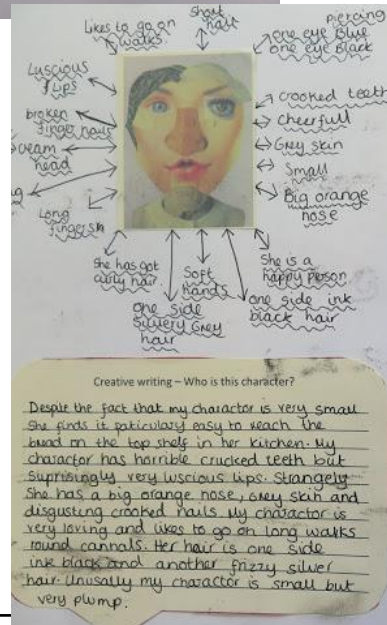 Likes to go on
walks
Short
hair
Piercing
one eye blue
one eye black
Luscious
lips
crooked teeth
broken
finger nails
cheerfull
cream
head
Grey skin
Small
Big orange
nose
Long
fingers
She has got
curly hair
Soft
hands
She is a
happy person
one side
silvery grey
hair
one side ink
black hair
Creative writing – Who is this character?
Despite the fact that my charactor is very small
She finds it paticulary easy to reach the
bread on the top shelf in her kitchen. My
charactor has horrible crucked teeth but
suprisingly very luscious lips. Strangely
She has a big orange nose, Grey skin and
disgusting crooked nails. My charactor is
very loving and likes to go on long walks
round cannals. Her hair is one side
ink black and another frizzy silver
hair. Unusally my charactor is small but
very plump.